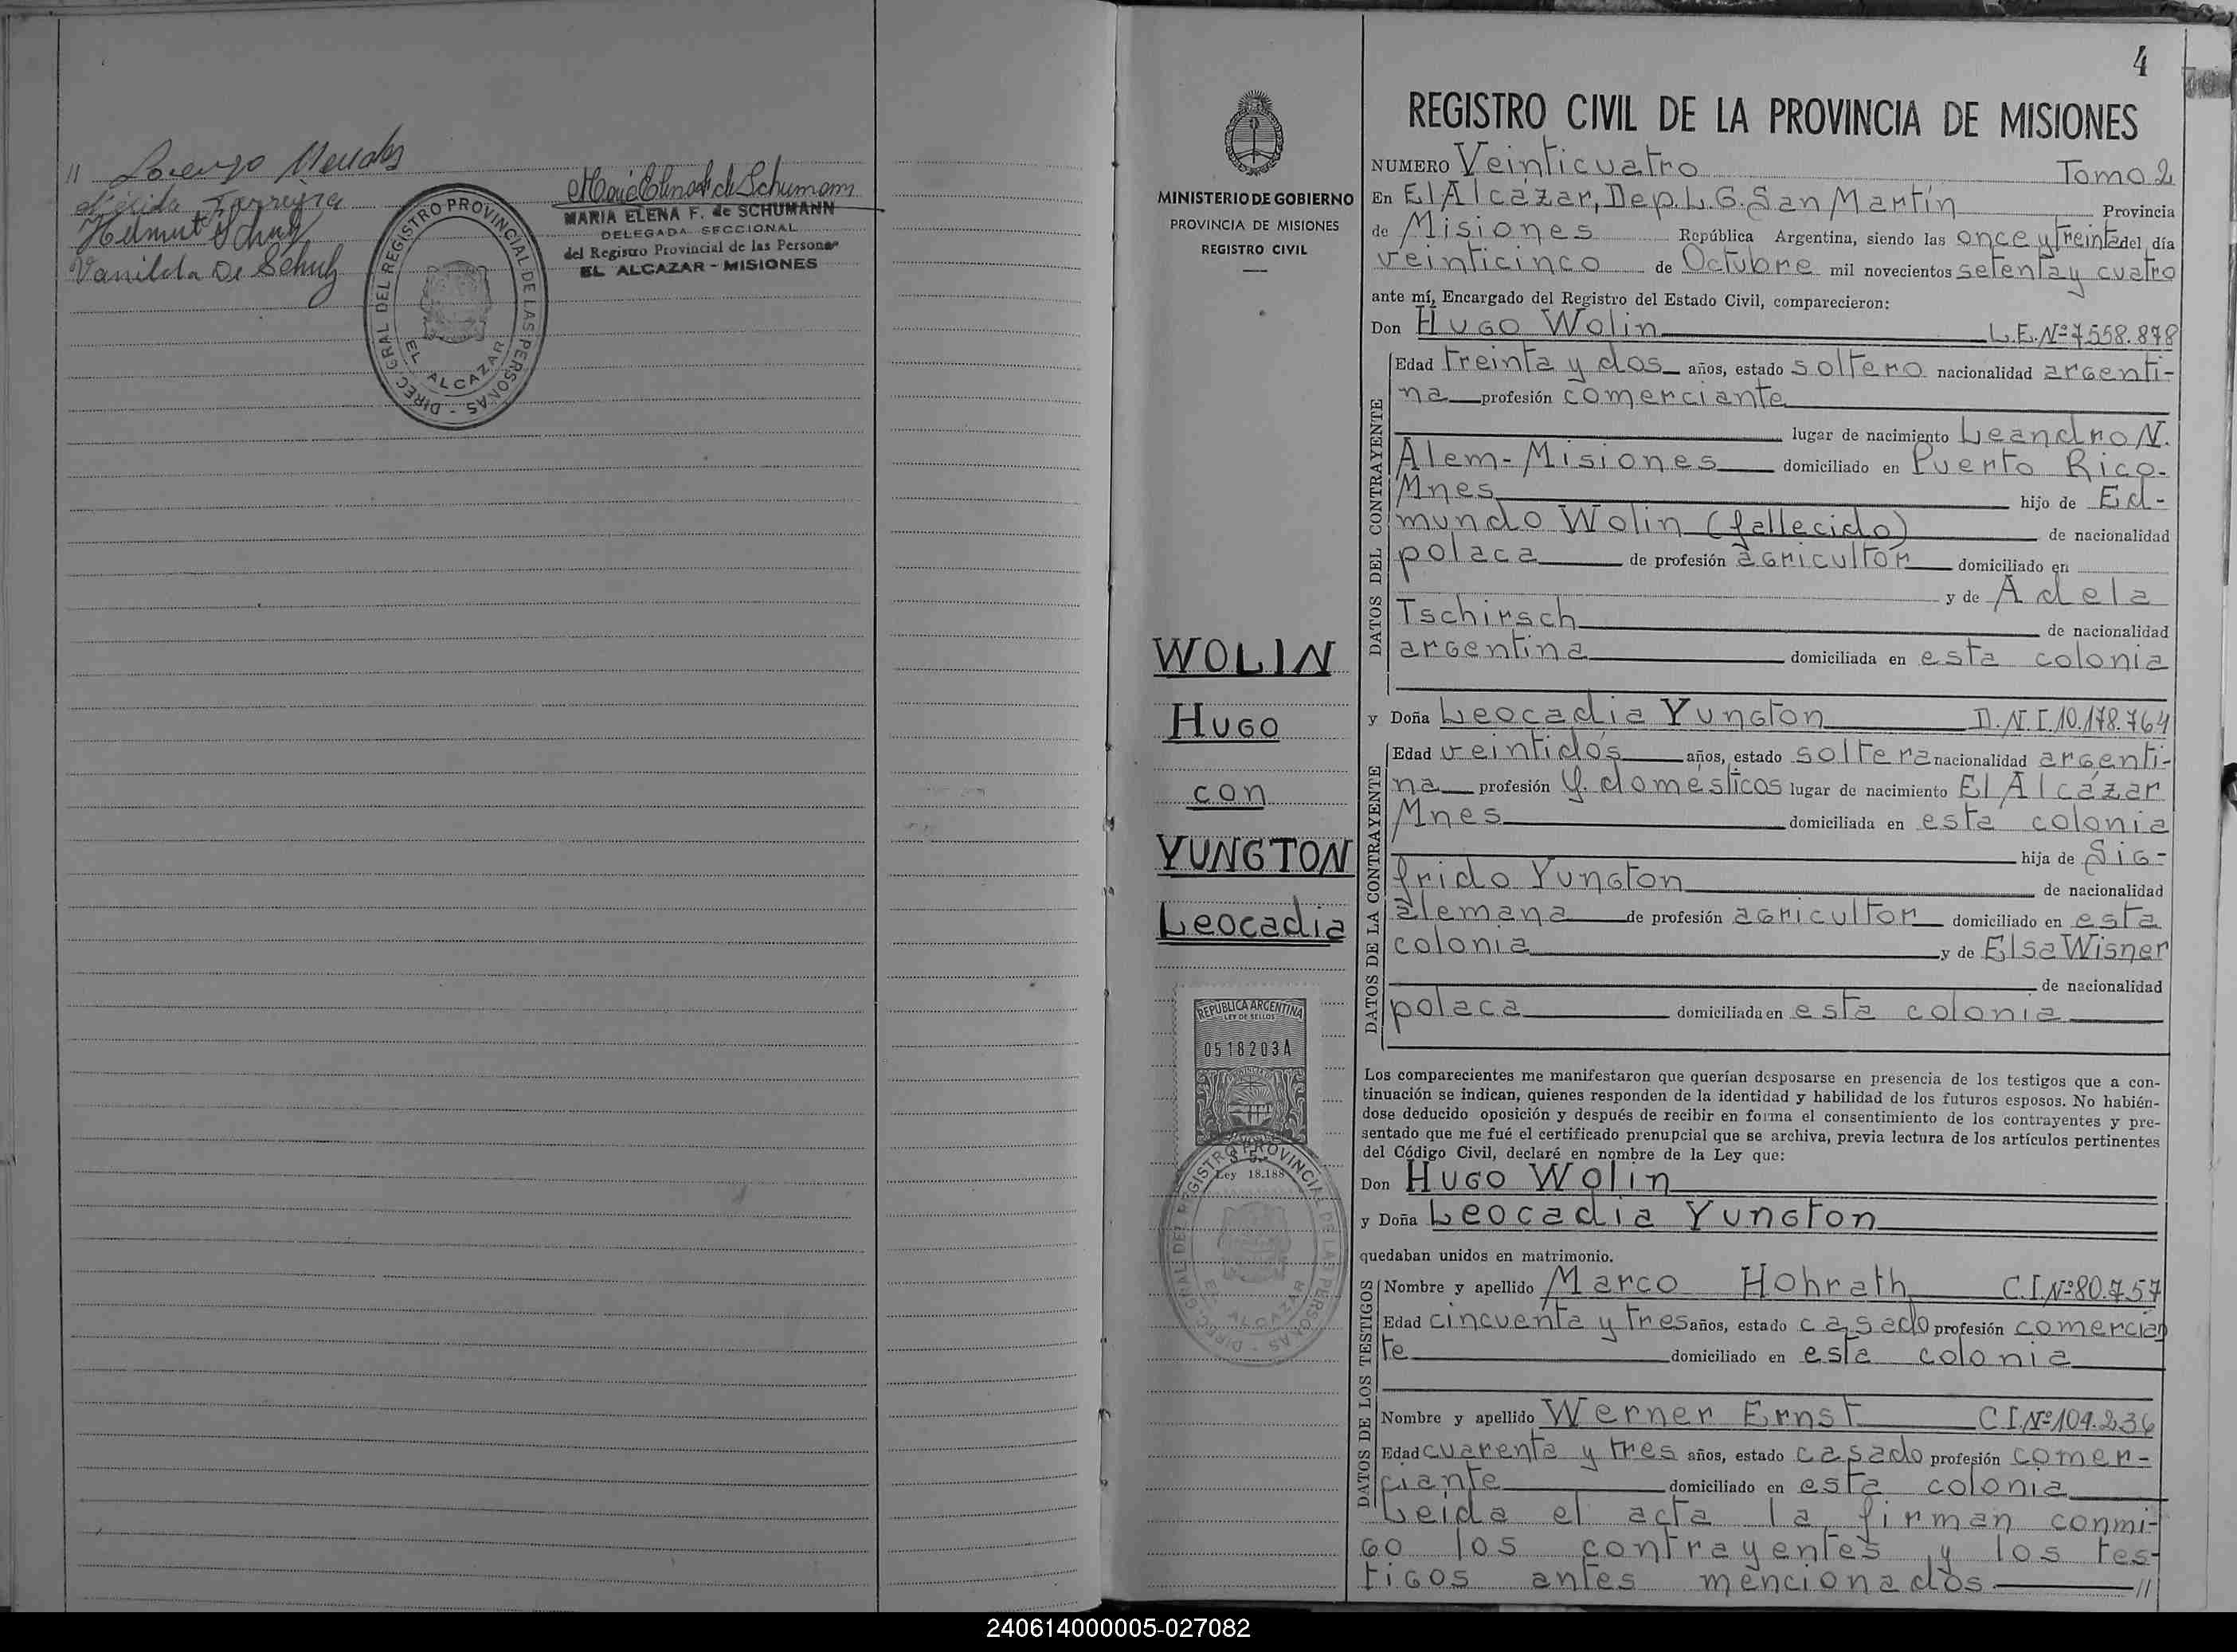 // Lorenzo Mendes
Nélida Ferreira
Helmut Schulz
Vanilda De Schulz
MARIA ELENA F. de SCHUMANN
DELEGADA SECCIONAL
del Registro Provincial de las Personas
EL ALCAZAR - MISIONES
DIREC. GRAL. DEL REGISTRO PROVINCIAL DE LAS PERSONAS
EL ALCAZAR
4
MINISTERIO DE GOBIERNO
PROVINCIA DE MISIONES
REGISTRO CIVIL
WOLIN
HUGO
con
YUNGTON
Leocadia
REPUBLICA ARGENTINA
LEY DE SELLOS
0518203A
Ley 18.188
DIREC. GRAL. DEL REGISTRO PROVINCIAL DE LAS PERSONAS
EL ALCAZAR
REGISTRO CIVIL DE LA PROVINCIA DE MISIONES
NUMERO Veinticuatro Tomo 2
En El Alcazar, Dep. L.G. San Martín Provincia
de Misiones República Argentina, siendo las once y treinta del día
veinticinco de Octubre mil novecientos setenta y cuatro
ante mí, Encargado del Registro del Estado Civil, comparecieron:
Don Hugo Wolin L.E. Nº 7.558.878
DATOS DEL CONTRAYENTE
Edad treinta y dos años, estado soltero nacionalidad argenti-
na profesión comerciante
lugar de nacimiento Leandro N.
Alem-Misiones domiciliado en Puerto Rico-
Mnes hijo de Ed-
mundo Wolin (fallecido) de nacionalidad
polaca de profesión agricultor domiciliado en
y de Adela
Tschirsch de nacionalidad
argentina domiciliada en esta colonia
y Doña Leocadia Yungton D.N.I. 10.178.764
DATOS DE LA CONTRAYENTE
Edad veintidós años, estado soltera nacionalidad argenti-
na profesión Q. domésticos lugar de nacimiento El Alcázar
Mnes domiciliada en esta colonia
hija de Sig-
frido Yungton de nacionalidad
alemana de profesión agricultor domiciliado en esta
colonia y de Elsa Wisner
de nacionalidad
polaca domiciliada en esta colonia
Los comparecientes me manifestaron que querían desposarse en presencia de los testigos que a con-
tinuación se indican, quienes responden de la identidad y habilidad de los futuros esposos. No habién-
dose deducido oposición y después de recibir en forma el consentimiento de los contrayentes y pre-
sentado que me fué el certificado prenupcial que se archiva, previa lectura de los artículos pertinentes
del Código Civil, declaré en nombre de la Ley que:
Don Hugo Wolin
y Doña Leocadia Yungton
quedaban unidos en matrimonio.
DATOS DE LOS TESTIGOS
Nombre y apellido Marco Hohrath C.I. Nº 80.757
Edad cincuenta y tres años, estado casado profesión comercian
te domiciliado en esta colonia
Nombre y apellido Werner Ernst C.I. Nº 104.236
Edad cuarenta y tres años, estado casado profesión comer-
ciante domiciliado en esta colonia
Leida el acta la firman conmi-
go los contrayentes y los tes-
tigos antes mencionados //
240614000005-027082